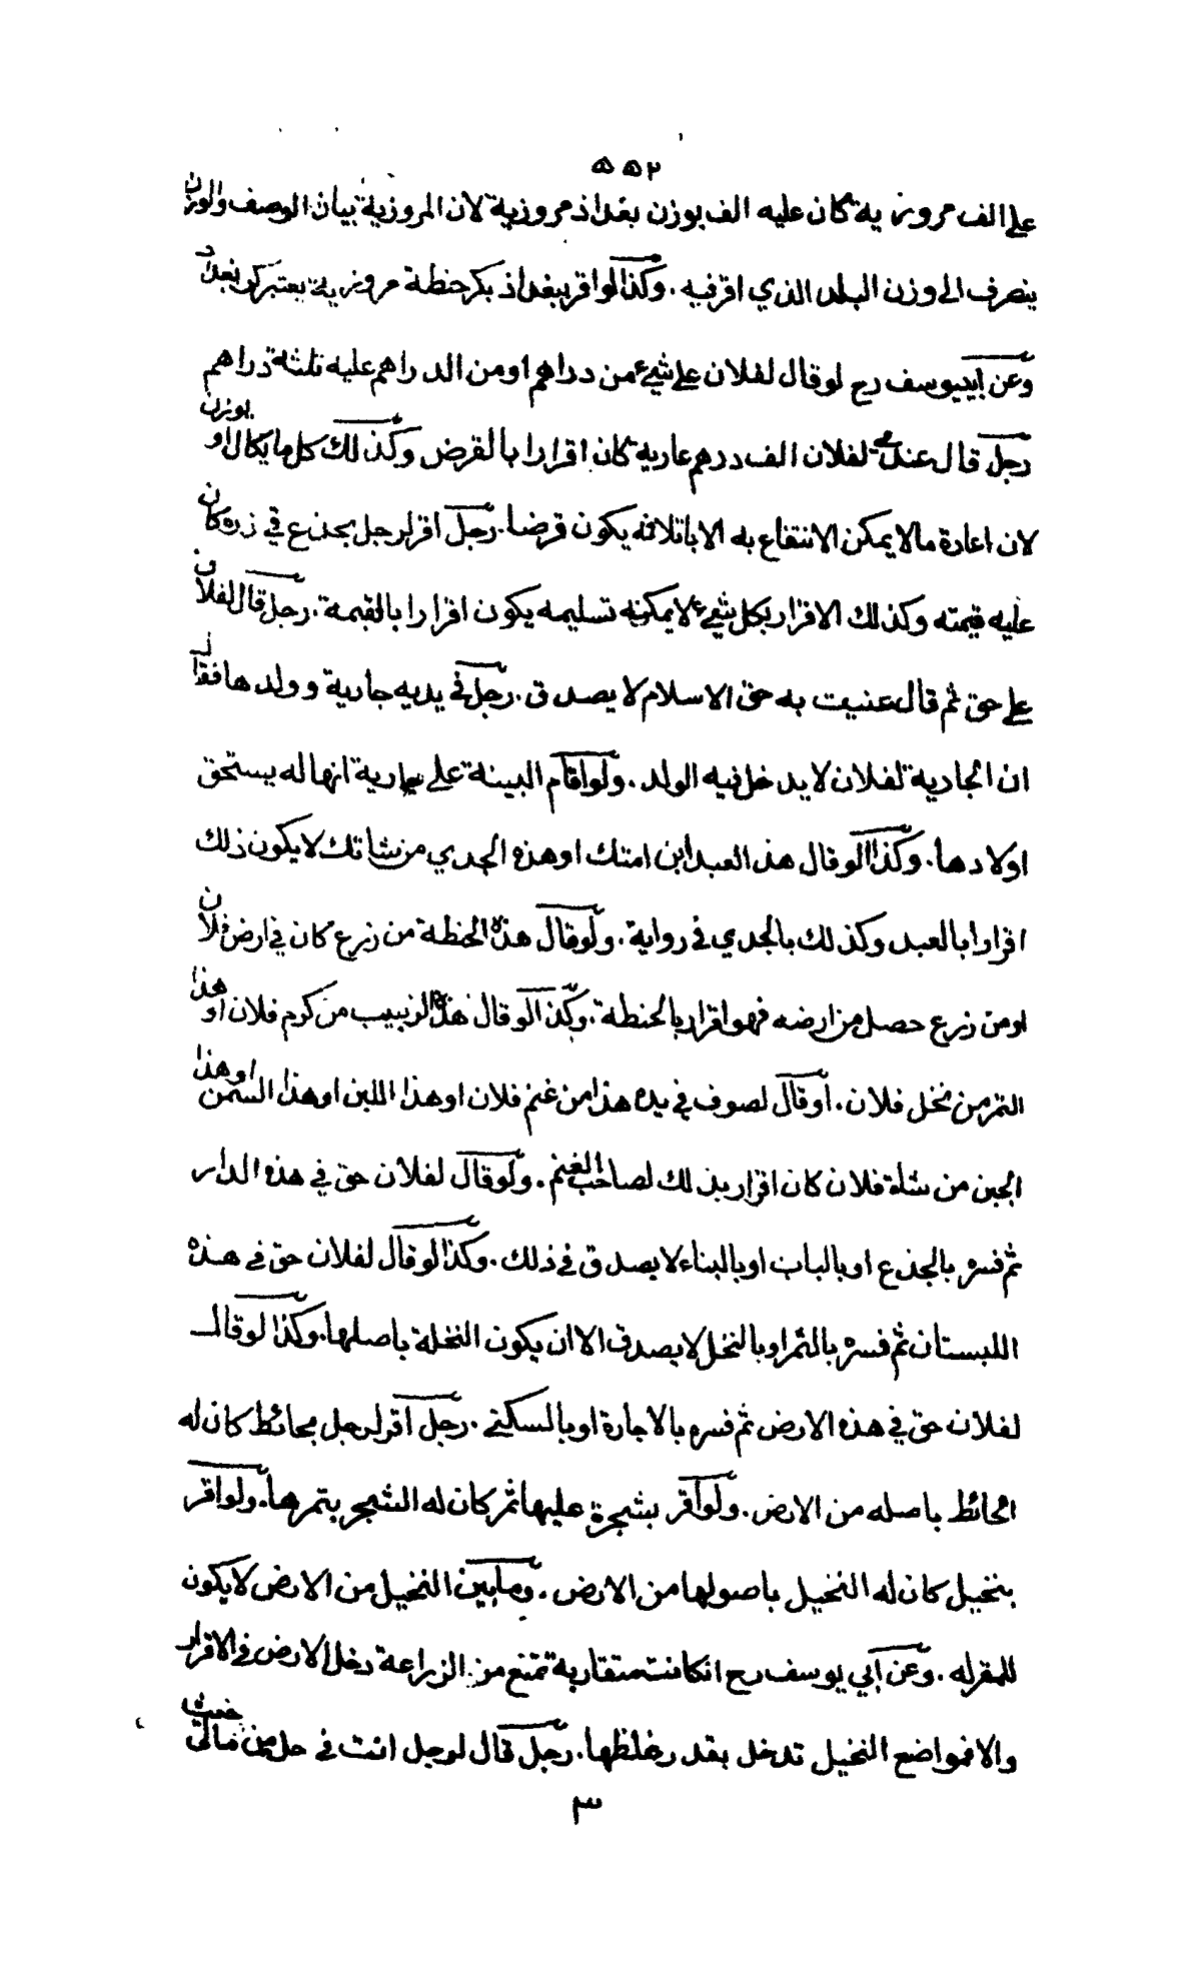 ٥٥٢
على الف مروزية كان عليه الف بوزن بغداذ مروزية لان المروزية بيان الوصف والوزن
ينصرف الى وزن البلد الذي اقر فيه . وكذا لو اقر ببغداذ بكر حنطة مروزية يعتبر كر بغداد
وعن ابي يوسف رح لو قال لفلان علي شيء من دراهم او من الدراهم عليه ثلثة دراهم
رجل قال عندي لفلان الف درهم عارية كان اقرارا بالقرض وكذلك كل ما يكال او يوزن
لان اعارة مالا يمكن الانتفاع به الا باتلافه يكون قرضا . رجل اقر لرجل بجذع في زره كان
عليه قيمته وكذلك الاقرار بكل شيء لا يمكنه تسليمه يكون اقرارا بالقيمة . رجل قال لفلان
علي حق ثم قال عنيت به حق الاسلام لا يصدق . رجل في يديه جارية وولدها فقال
ان الجارية لفلان لا يدخل فيه الولد . ولو اقام البينة على جارية انها له يستحق
اولادها . وكذا لو قال هذا العبد ابن امتك او هذه الجدي من شاتك لا يكون ذلك
اقرارا بالعبد وكذلك بالجدي في رواية . ولو قال هذه الحنطة من زرع كان في ارض فلان
او من زرع حصل من ارضه فهو اقرار بالحنطة . وكذا لو قال هذا الزبيب من كرم فلان او هذا
التمر من نخل فلان . او قال لصوف في يده هذا من غنم فلان او هذا اللبن او هذا السمن او هذا
الجبن من شاة فلان كان اقرار بذلك لصاحب الغنم . ولو قال لفلان حق في هذه الدار
ثم فسره بالجذع او بالباب او بالبناء لا يصدق في ذلك . وكذا لو قال لفلان حق في هذه
اللبستان ثم فسره بالثمر او بالنخل لا يصدق الا ان يكون النخلة باصلها . وكذا لو قال
لفلان حق في هذه الارض ثم فسره بالاجارة او بالسكنى . رجل اقر لرجل بحائط كان له
الحائط باصله من الارض . ولو اقر بشجرة عليها ثمر كان له الشجر بتمرها . ولو اقر
بنخيل كان له النخيل باصولها من الارض . وما بين النخيل من الارض لا يكون
للمقر له . وعن ابي يوسف رح ان كانت متقاربة تمنع من الزراعة دخل الارض في الاقرار
والا فمواضع النخيل تدخل بقدر غلظها . رجل قال لرجل انت في حل من مالي
٣